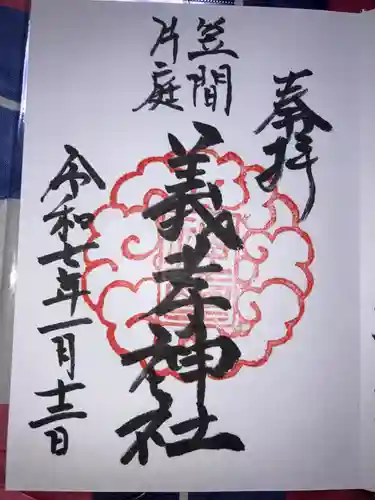 奉拝
笠間
片庭
義孝神社
令和七年一月十三日